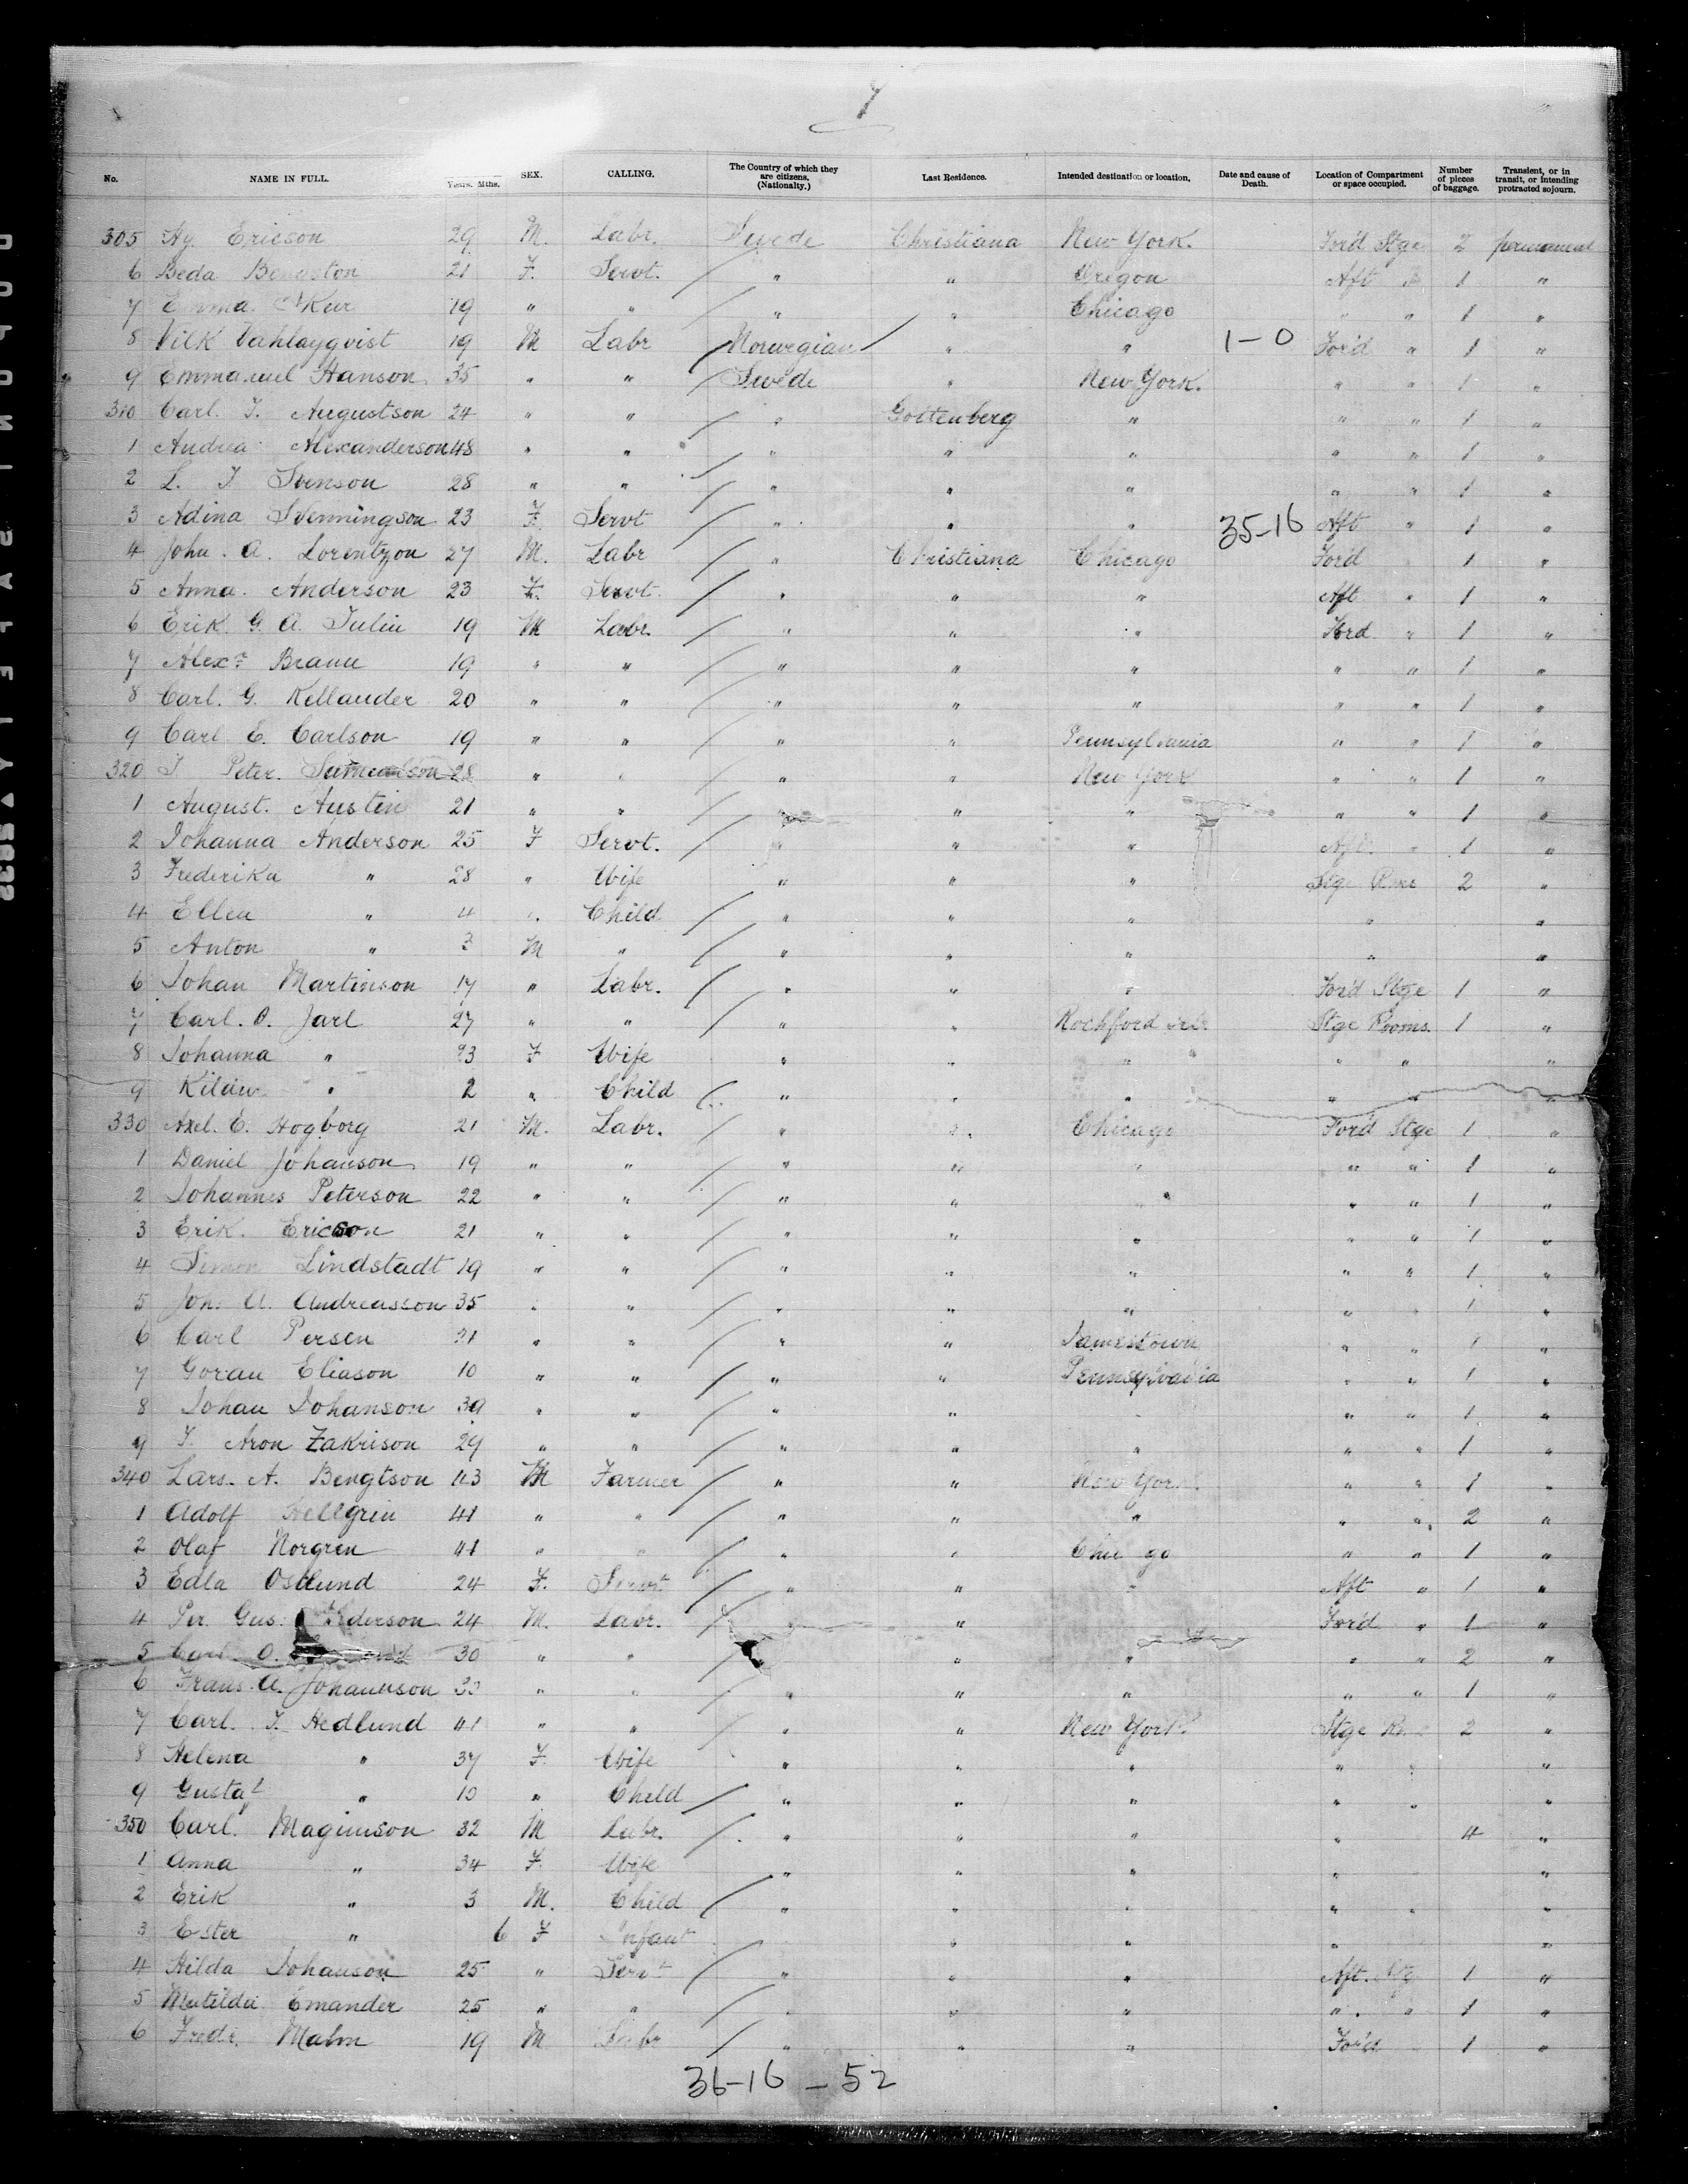 7
No. NAME IN FULL. Years. Mths. SEX. CALLING. The Country of which they are citizens. (Nationalty.) Last Residence. Intended destination or location. Date and cause of Death. Location of Compartment or space occupied. Number of pieces of baggage. Transient, or in transit, or intending protracted sojourn.
305 Ericson 29 M. Labr. Swede Christiana New York. For'd Stge 2 permanent
6 Beda 21 F. Servt. " " Oregon Aft 1 "
7 Emma 19 " " " " Chicago " " 1 "
8 Vilk Vahlayqvist 19 M Labr Norwegian " " 1-0 For'd " 1 "
9 Emmanuel Hanson 35 " " Swede " New York. " " 1 "
310 Carl. J. Augustson 24 " " " Gottenberg " " " 1 "
1 Andrea Alexanderson 48 " " " " " " " 1 "
2 L. J Svenson 28 " " " " " " " 1 "
3 Adina Svenningson 23 F. Servt " " " 35-16 Aft " 1 "
4 John. A. Lorentzon 27 M. Labr " Christiana Chicago For'd 1 "
5 Anna. Anderson 23 F. Servt. " " " Aft " 1 "
6 Erik. G. A. Julin 19 M Labr. " " " Ford " 1 "
7 Alexr Braun 19 " " " " " " " 1 "
8 Carl. G. Kellander 20 " " " " " " " 1 "
9 Carl E. Carlson 19 " " " " Pennsylvania " " 1 "
320 J Peter. 28 " " " " New York " " 1 "
1 August. Austin 21 " " " " " " " 1 "
2 Johanna Anderson 25 F Servt. " " " Aft. " 1 "
3 Frederika " 28 " Wife " " " Stge Rms 2 "
4 Ellen " 4 " Child " " " " "
5 Anton " 3 M " " " " " "
6 Johan Martinson 17 " Labr. " " " For'd Stge 1 "
7 Carl. O. Jarl 27 " " " " Rochford Stge Rooms. 1 "
8 Johanna " 23 F Wife " " " " " "
9 " 2 " Child " " " " " "
330 Axel. E. Hogborg 21 M. Labr. " " Chicago For'd Stge 1 "
1 Daniel Johanson 19 " " " " " " " 1 "
2 Johannes Peterson 22 " " " " " " " 1 "
3 Erik. Ericson 21 " " " " " " " 1 "
4 Simon Lindstadt 19 " " " " " " " 1 "
5 Joh. A. Andreasson 35 " " " " " " " 1 "
6 Carl Persen 21 " " " " Jamestown " " 1 "
7 Goran Eliason 10 " " " " Pennsylvania " " 1 "
8 Johan Johanson 39 " " " " " " " 1 "
9 J. Aron Zakrison 29 " " " " " " " 1 "
340 Lars. A. Bengtson 43 M Farmer " " New York. " " 1 "
1 Adolf Hellgrin 41 " " " " " " " 2 "
2 Olaf Norgren 41 " " " " Chicago " " 1 "
3 Edla Ostlund 24 F. Servt " " " Aft " 1 "
4 Per Gus. 24 M. Labr. " " For'd " 1 "
5 Carl O. 30 " " " " " " 2 "
6 Frans. A. Johannson " " " " " " " 1 "
7 Carl. J. Hedlund 41 " " " " New York. Stge Rms 2 "
8 Helena " 37 F. Wife " " " " " "
9 Gustaf " 10 " Child " " " " " "
350 Carl. Magnuson 32 M Labr. " " " " 4 "
1 Anna " 34 F. Wife " " " " "
2 Erik " 3 M. Child " " " " " "
3 Ester " 6 F Infant " " " "
4 Hilda Johanson 25 " Servt " " " Aft. Stg 1 "
5 Matilda Emander 25 " " " " " " " 1 "
6 Fredr. Malm 19 M Labr " " " For'd 1 "
36-16-52